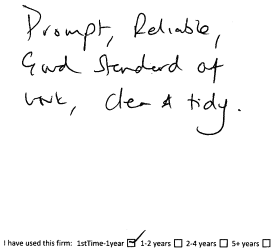 Prompt, Reliable,
Good Standard of
work, clean & tidy.
I have used this firm: 1stTime-1year ☑ 1-2 years ☐ 2-4 years ☐ 5+ years ☐